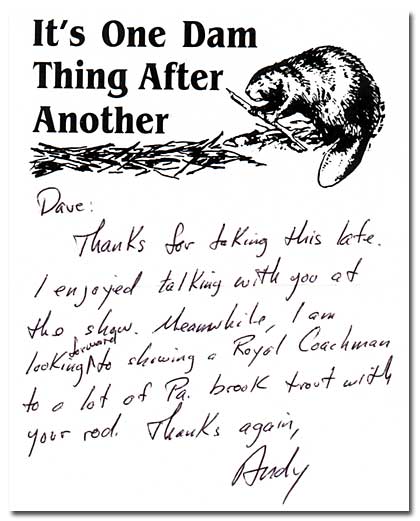 It's One Dam
Thing After
Another
Dave:
Thanks for taking this late.
I enjoyed talking with you at
the show. Meanwhile, I am
looking forward to showing a Royal Coachman
to a lot of Pa. brook trout with
your rod. Thanks again,
Andy